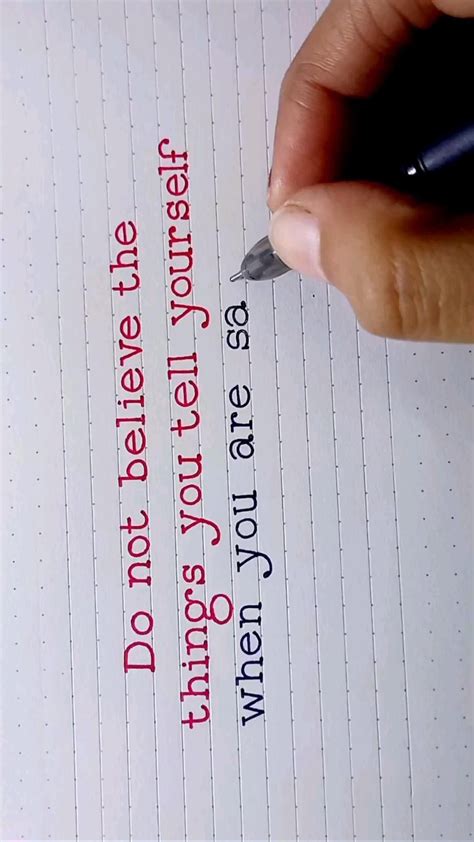 Do not believe the
things you tell yourself
when you are sa